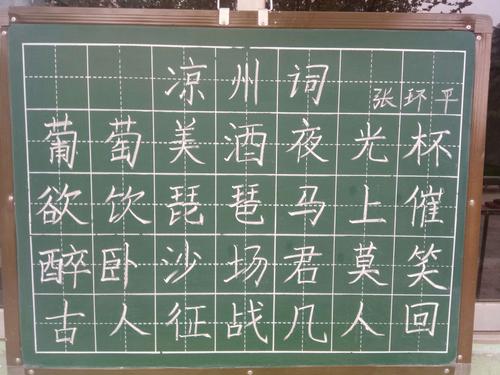 凉州词
张环平
葡萄美酒夜光杯
欲饮琵琶马上催
醉卧沙场君莫笑
古人征战几人回